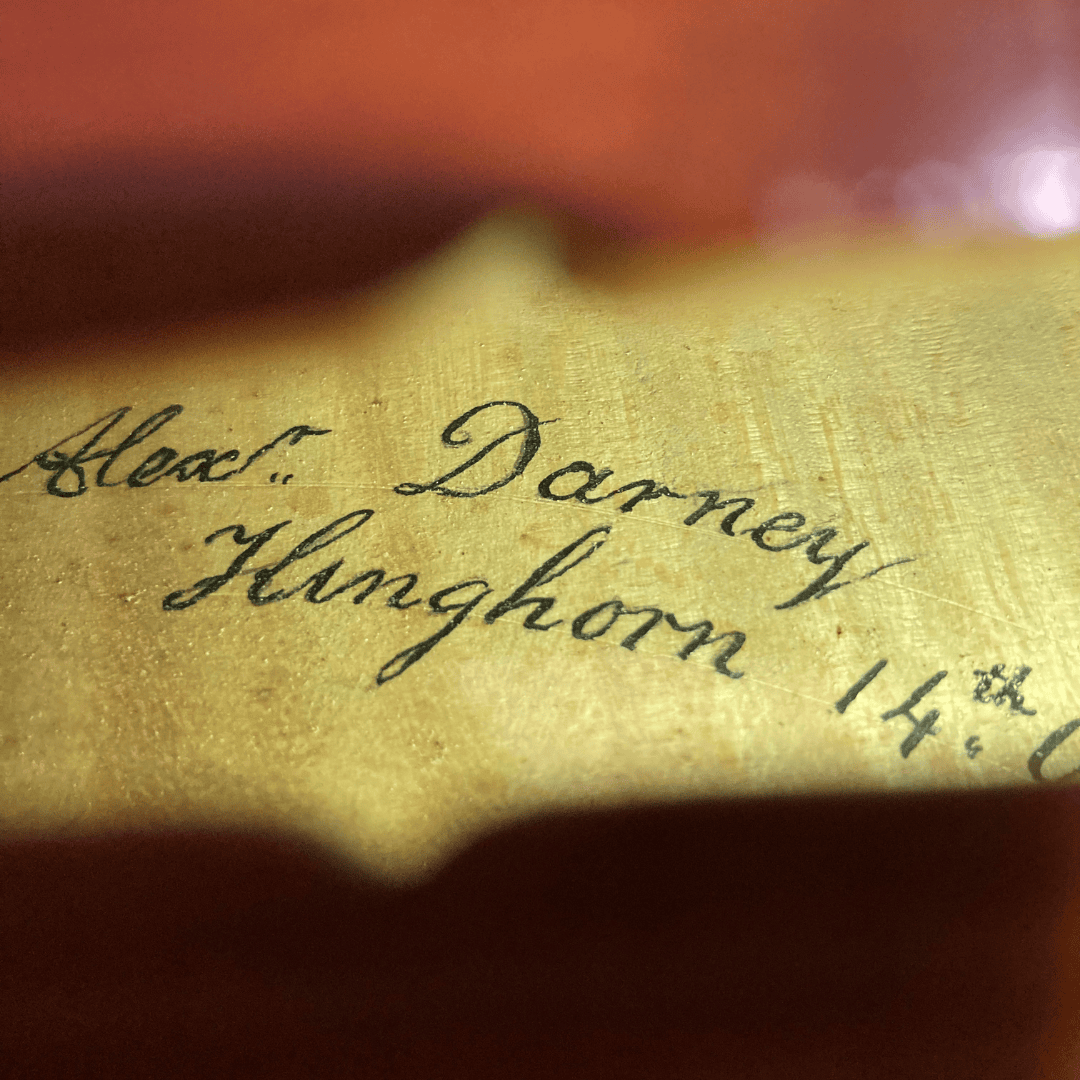 Alexr. Darney
Kinghorn 14th.